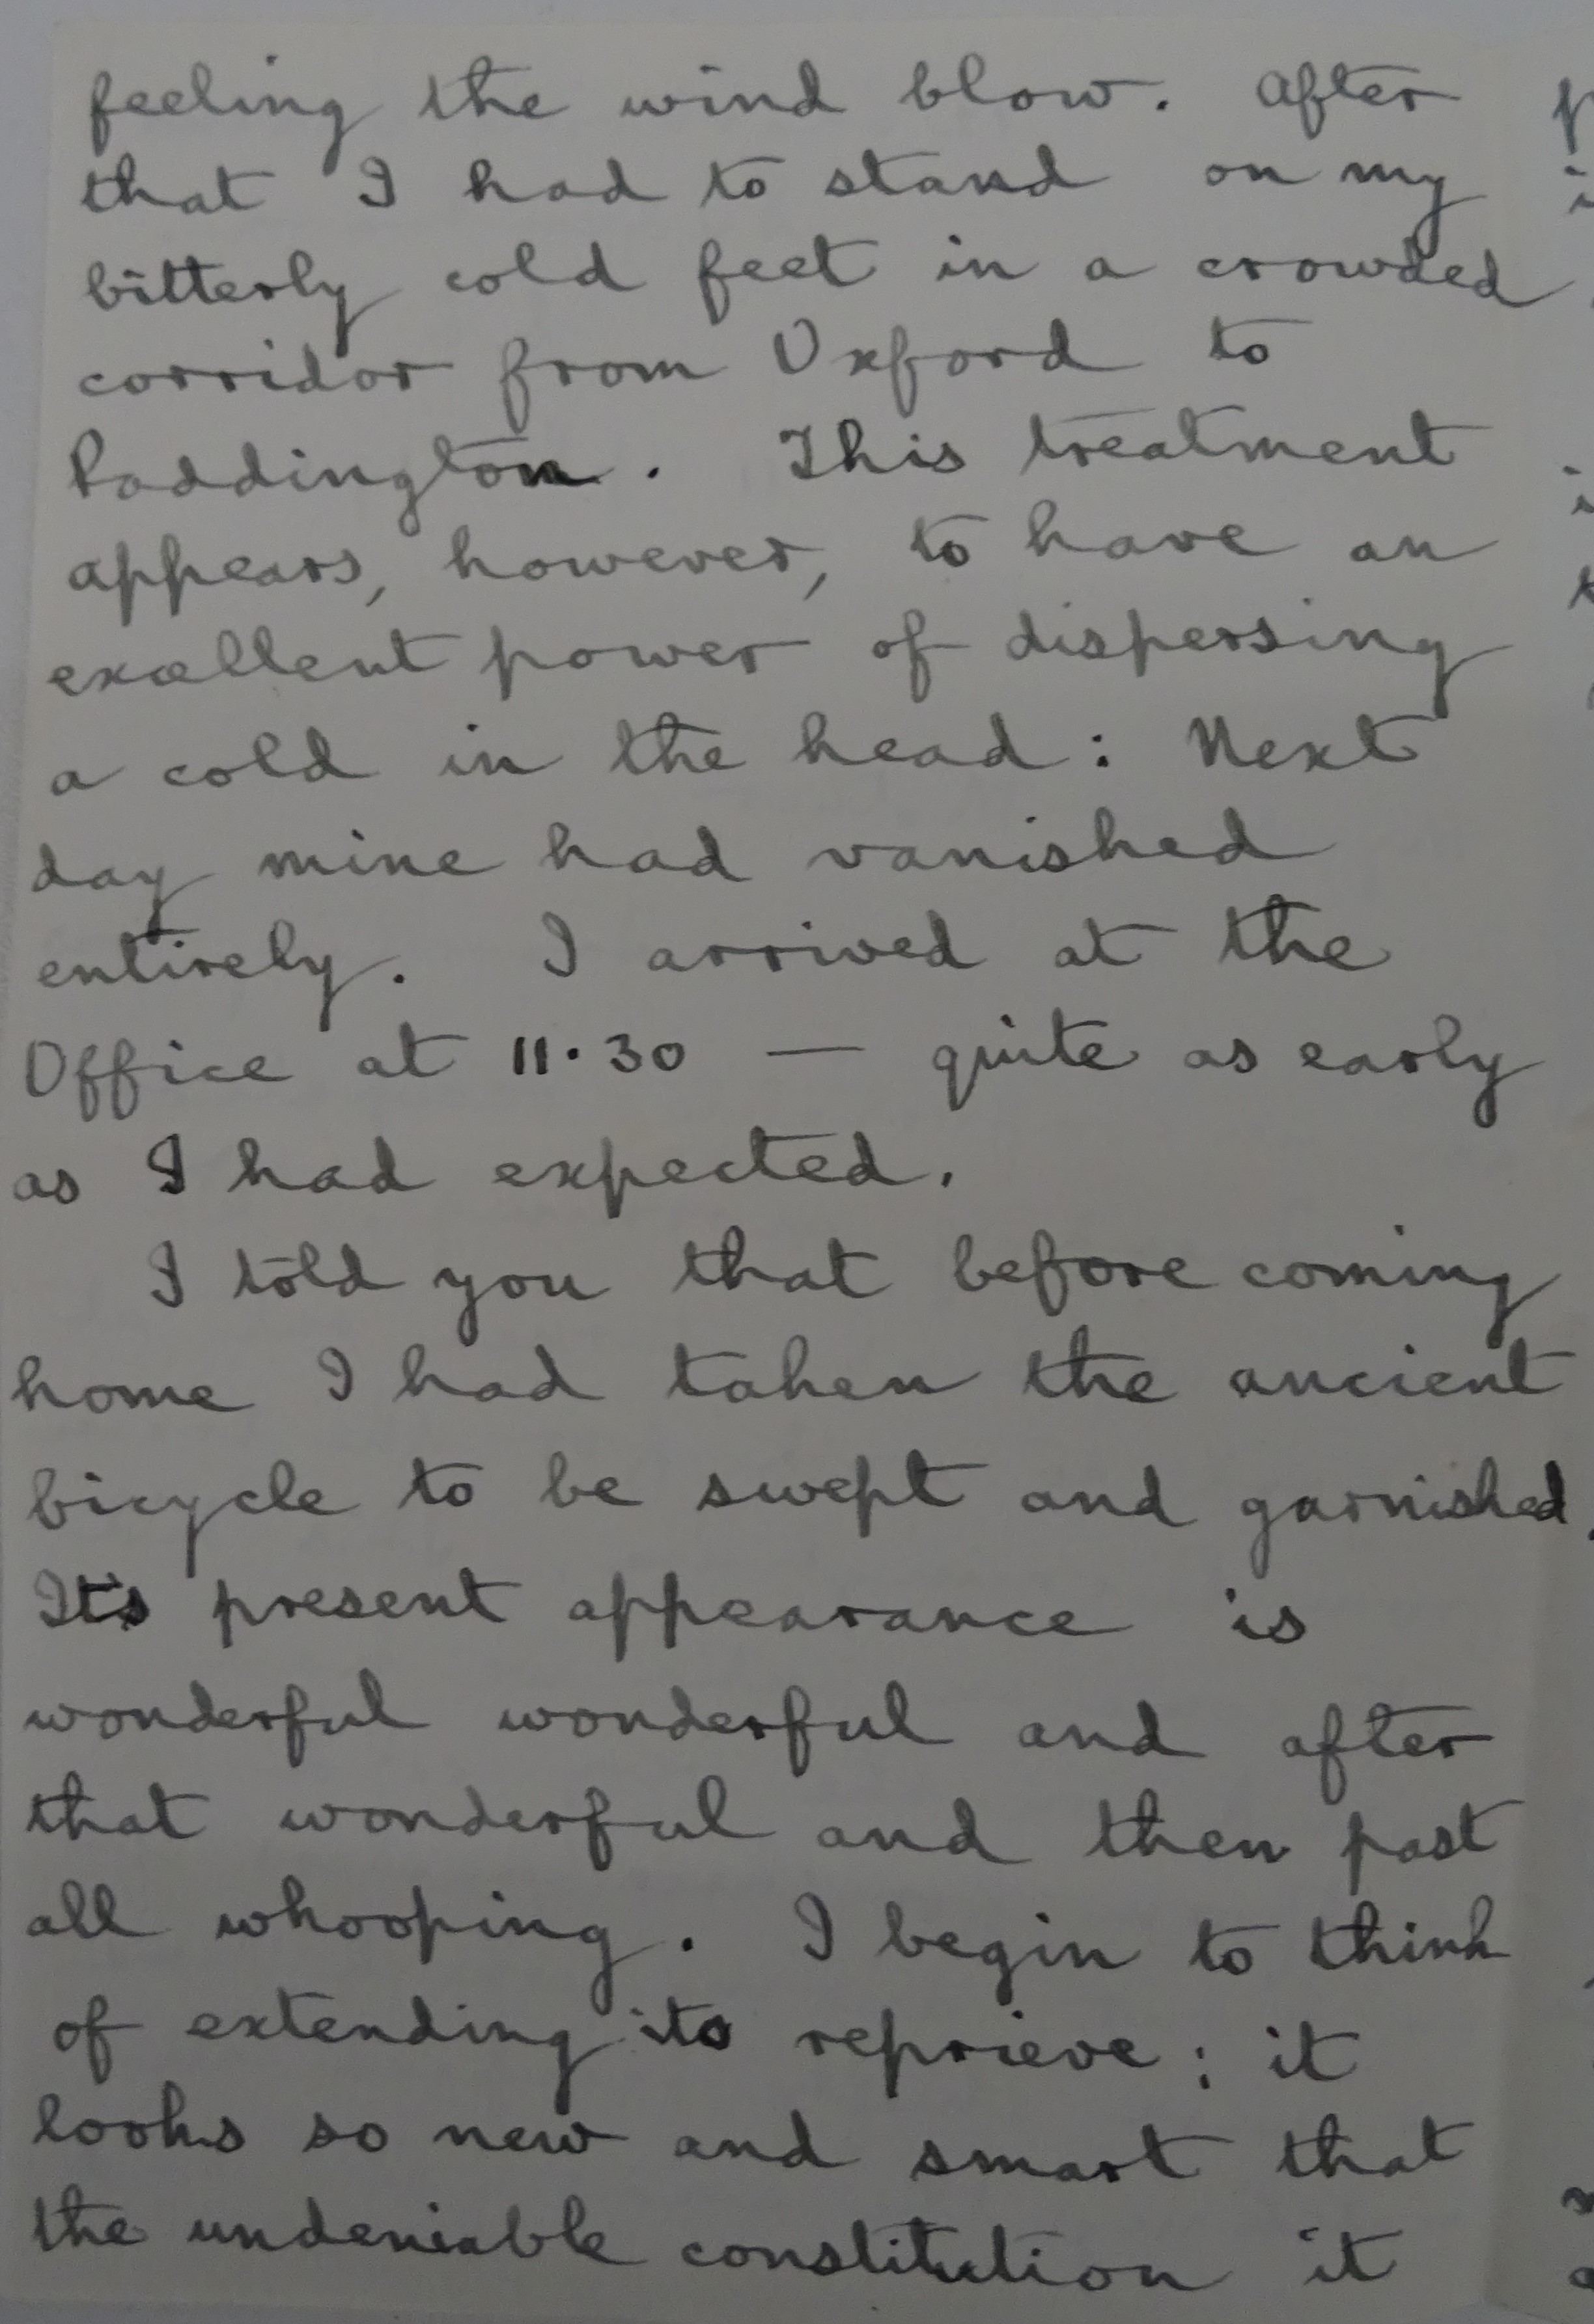 feeling the wind blow. After
that I had to stand on my
bitterly cold feet in a crowded
corridor from Oxford to
Paddington. This treatment
appears, however, to have an
excellent power of dispersing
a cold in the head: Next
day mine had vanished
entirely. I arrived at the
Office at 11·30 — quite as early
as I had expected.
I told you that before coming
home I had taken the ancient
bicycle to be swept and garnished.
Its present appearance is
wonderful wonderful and after
that wonderful and then past
all whooping. I begin to think
of extending its reprieve; it
looks so new and smart that
the undeniable constitution it